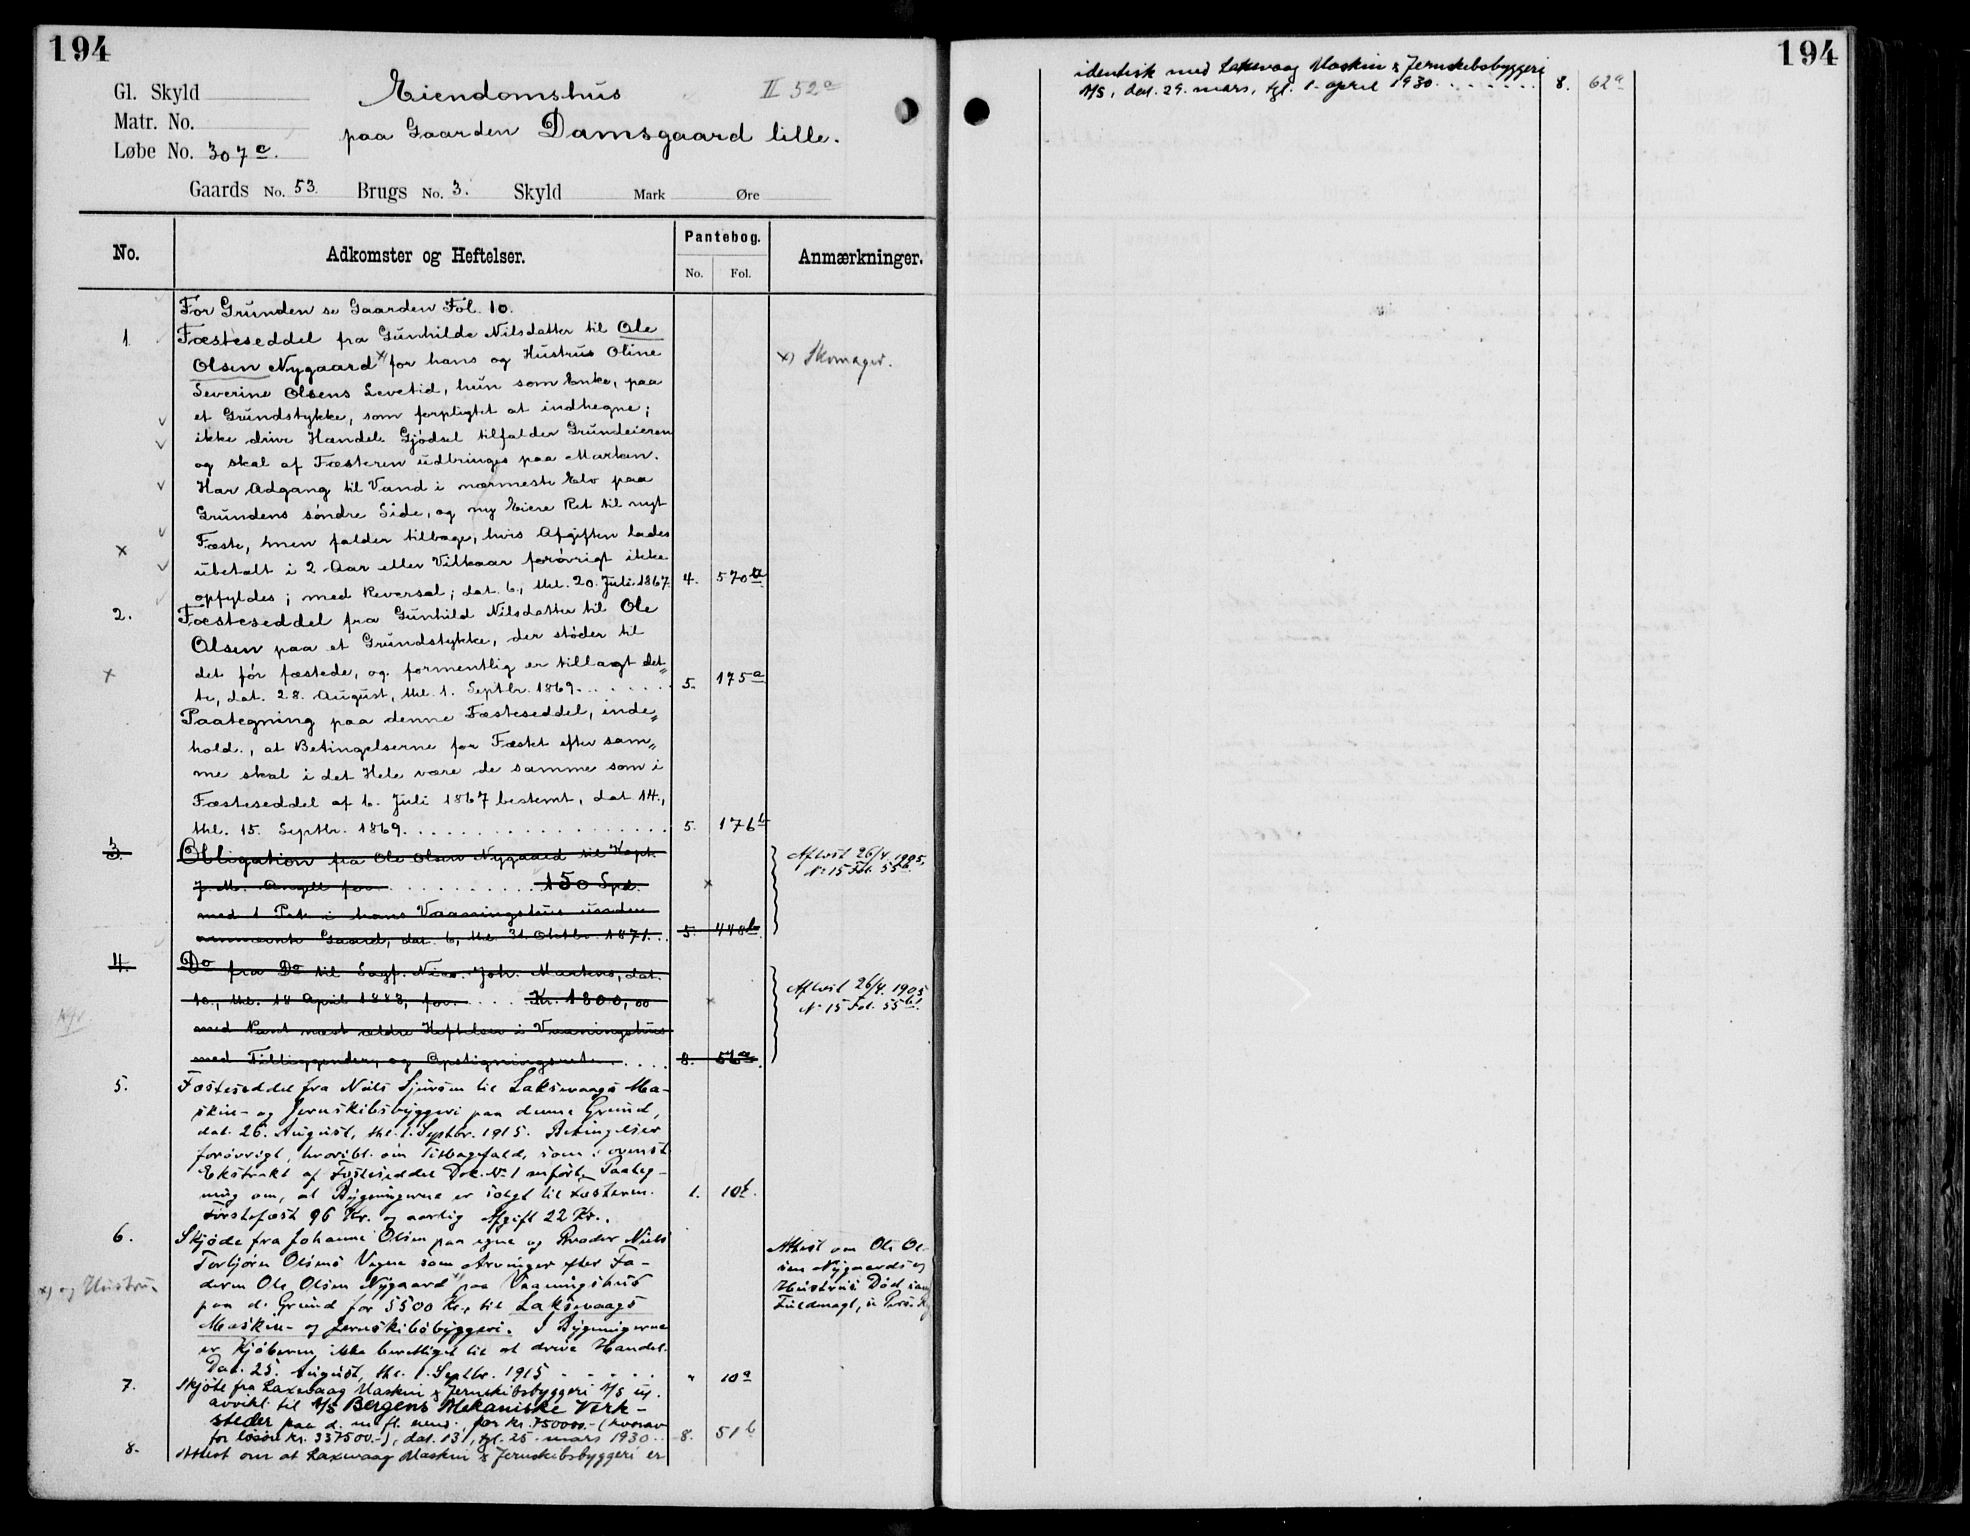 194
Gl. Skyld
Matr. No.
Løbe No. 307 a.
Eiendomshus II 52a
paa Gaarden Damsgaard lille.
Gaards No. 53. Brugs No. 3. Skyld Mark Øre
No. Adkomster og Heftelser. Pantebog. Anmærkninger.
No. Fol.
For Grunden se Gaarden Fol. 10.
1. Fæsteseddel fra Gunhilde Nilsdatter til Ole
Olsen Nygaard x) for hans og Hustrus Oline
x) Skomager.
Severine Olsens Levetid, hun som Enke, paa
et Grundstykke, som forpligtet at indhegne;
ikke drive Handel. Gjødsel tilfalder Grundeieren
og skal af Fæsteren udbringes paa Marken.
Har Adgang til Vand i nærmeste Elv paa
Grundens søndre Side, og ny Eiere Ret til nyt
Fæste, men falder tilbage, hvis Afgiften lades
ubetalt i 2 Aar eller Vilkaar forøvrigt ikke
opfyldes; med Reversal; dat. 6., thl. 20. Juli 1867. 4. 570 b
2. Fæsteseddel fra Gunhild Nilsdatter til Ole
Olsen paa et Grundstykke, der støder til
det før fæstede, og formentlig er tillagt det„
te, dat. 28. August, thl. 1. Septbr. 1869. . . . . . . 5. 175 a
Paategning paa denne Fæsteseddel, inde„
hold., at Betingelserne for Fæstet efter sam„
me skal i det Hele være de samme som i
Fæsteseddel af 6. Juli 1867 bestemt, dat. 14.,
thl. 15. Septbr. 1869. . . . . . . . . . . . . . . . . 5. 176 b
3. Obligation fra Ole Olsen Nygaard til Kapt.
J. M. Angell for . . . . . . . . . 150 Spd. x
med 1 Pr. i hans Vaaningshus under
Gaard, dat. 6., thl. 31. Oktbr. 1871. . . 5. 448 b
Aflæst 26/4 1905,
No 15 Fol. 55 b.
4. Do fra Do til Sagf. Nico. Joh. Martens, dat.
10., thl. 14 April 1883, for . . . . Kr. 1800,00 x
med Pant næst ældre Heftelser i Vaaningshus
med Tilliggender, og Opsigningsret. . . . . 8. 56 a
Aflæst 26/4. 1905
No 15 Fol. 55 b.
5. Fæsteseddel fra Nils Sjursen til Laksevaags Ma-
skin- og Jernskibsbyggeri paa denne Grund,
dat. 26. August, thl. 1. Septbr. 1915. Betingelser
forøvrigt, hvoribl. om Tilbagefald, som i ovenst.
Ekstrakt af Fæsteseddel Dok. No 1 anført. Paateg-
ning om, at Bygningerne er solgt til Fæsteren. 1. 10 b.
Førstefæst 96 Kr. og aarlig Afgift 22 Kr..
6. Skjøde fra Johanne Olsen paa egne og Broder Niels
Torbjørn Olsens Vegne som Arvinger efter Fa-
deren Ole Olsen Nygaard x) paa Vaaningshus
x) og Hustru.
paa d. Grund for 5500 Kr., til Laksevaags
Maskin- og Jernskibsbyggeri. I Bygningerne
er Kjøberen ikke berettiget til at drive Handel.
Dat. 25. August, thl. 1. Septbr. 1915 . . . . . " 10 a
Attest om Ole Ol-
sen Nygaards og
Hustrus Død samt
Fuldmagt,
7. Skjøte fra Laxevaag Maskin & Jernskibsbyggeri A/S u.
avvikl. til A/S Bergens Mekaniske Verk-
steder paa d. m. fl. eiend., for kr. 750000.- (hvorav
for løsøre kr. 337500.-), dat. 13/, tgl. 25. mars 1930 . . 8. 51 b
8. Attest om at Laxevaag Maskin & Jernskibsbyggeri er
194
identisk med Laksevaag Maskin & Jernskibsbyggeri
A/S, dat. 29. mars, tgl. 1. april 1930. . . . . . . 8. 62 a